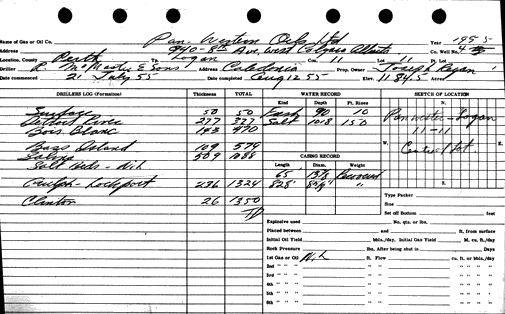 Name of Gas or Oil Co. Pan Western Oils Ltd Year 1955
Address 940-8th Ave. West Calgary Alberta Co. Well No. 4
Location, County Perth Logan Con. 11 Lot 11 Pt Lot
Driller P. McMaster & Sons Caledonia Prop. Owner Joseph Ryan
Date commenced 21 July 55 Date completed Aug 12 55 Elev. 1184.5 Areas
DRILLERS LOG (Formation) Thickness TOTAL WATER RECORD SKETCH OF LOCATION
Kind Depth Ft. Rises N.
Surface 50 50 Fresh 90 10 Pan Western - Logan
Detroit River 277 327 Salt 1018 150 11-11
Bois Blanc 143 470 W. E.
Bass Island 109 579 Centre Lot
Salina 509 1088 CASING RECORD
Salt Beds - Nil Length Diam. Weight
65' 13 3/8 Recovered
Guelph - Lockport 236 1324 828' "
S.
Clinton 26 1350 Type Packer
TD Size
Set off Bottom feet
Explosive used No. qts. or lbs.
Placed between and ft. from surface
Initial Oil Yield bbls./day, Initial Gas Yield M. cu. ft./day
Rock Pressure lbs. After being shut in Days
1st Gas or Oil Nil ft. Flow cu. ft. or bbls./day
2nd " " " " " " "
3rd " " " " " " "
4th " " " " " " "
5th " " " " " " "
6th " " " " " " "